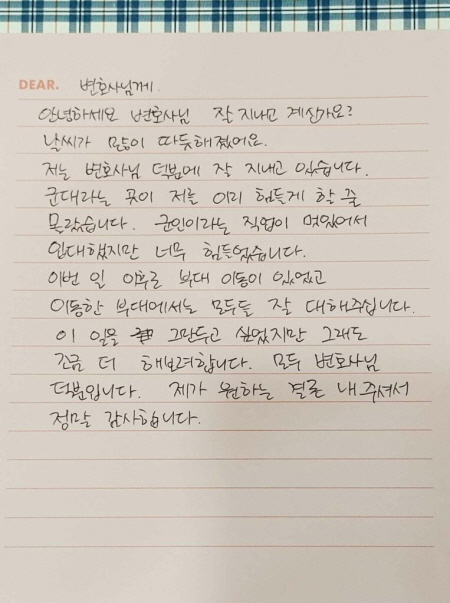 DEAR. 변호사님께.
안녕하세요 변호사님 잘 지내고 계신가요?
날씨가 많이 따듯해졌어요.
저는 변호사님 덕분에 잘 지내고 있습니다.
군대라는 곳이 저를 이리 힘들게 할 줄
몰랐습니다. 군인이라는 직업이 멋있어서
입대했지만 너무 힘들었습니다.
이번 일 이후로 부대 이동이 있었고
이동한 부대에서는 모두들 잘 대해주십니다.
이 일을 그만두고 싶었지만 그래도
조금 더 해보려합니다. 모두 변호사님
덕분입니다. 제가 원하는 결론 내주셔서
정말 감사합니다.